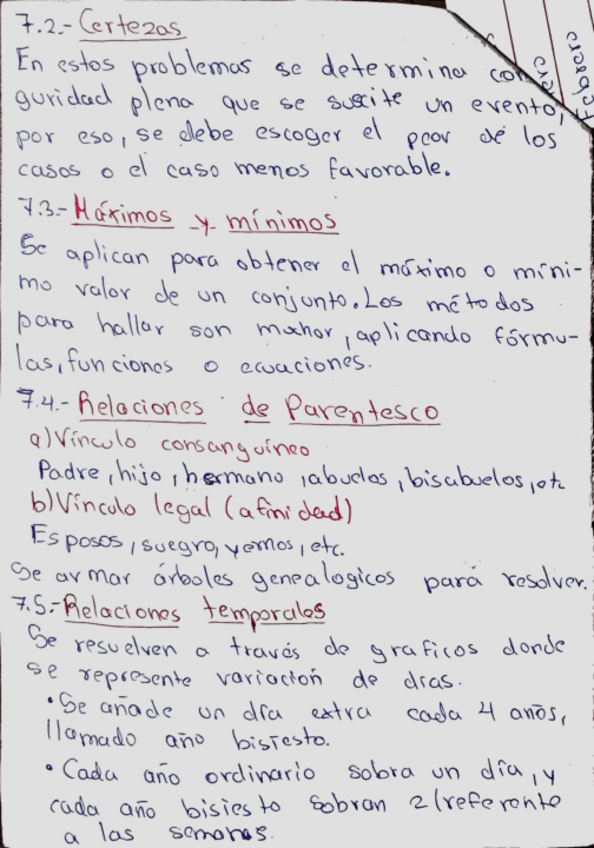 7.2.- Certezas
En estos problemas se determina con
guridad plena que se suscite un evento,
por eso, se debe escoger el peor de los
casos o el caso menos favorable.
7.3.- Máximos y mínimos
Se aplican para obtener el máximo o míni-
mo valor de un conjunto. Los métodos
para hallar son muchor, aplicando fórmu-
las, funciones o ecuaciones.
7.4.- Relaciones de Parentesco
a) Vínculo consanguíneo
Padre, hijo, hermano, abuelos, bisabuelos, etc
b) Vínculo legal (afinidad)
Esposos, suegro, yernos, etc.
Se armar árboles genealogicos para resolver.
7.5.- Relaciones temporales
Se resuelven a través de graficos donde
se represente variación de días.
• Se añade un día extra cada 4 años,
llamado año bisiesto.
• Cada año ordinario sobra un día, y
cada año bisiesto sobran 2 (referente
a las semanas.